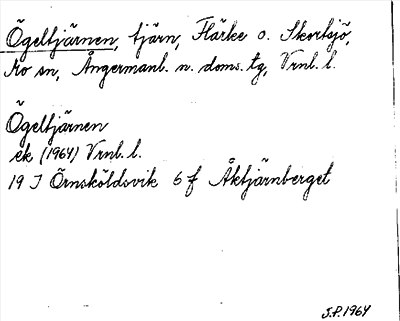 Ögeltjärnen, tjärn, Flärke o. Skortsjö,
Mo sn, Ångermanl. n. doms. tg, Vrnl. l.
Ögeltjärnen
ek (1964) Vrnl. l.
19 J Örnsköldsvik 6 f Åktjärnberget
J.P. 1964